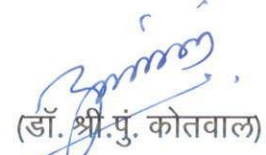 (डॉ. श्री.पुं. कोतवाल)